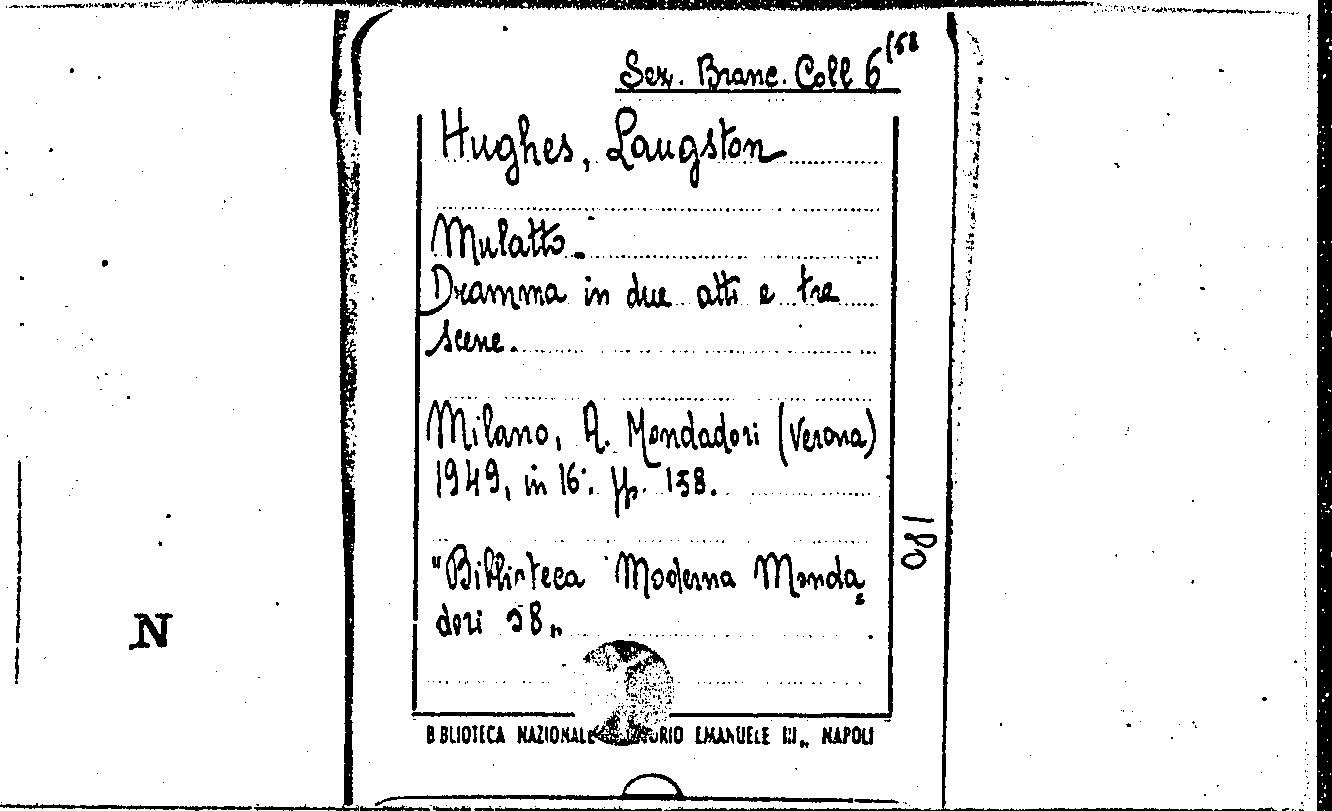 Sez. Branc. Coll 6 (58
Hughes, Laugston
Mulatto.
Dramma in due atti e tre
scene.
Milano, A. Mondadori (Verona)
1949, in 16°. pp. 158.
"Biblioteca Moderna Monda=
dori 58"
180
N
BIBLIOTECA NAZIONALE VITTORIO EMANUELE III" NAPOLI